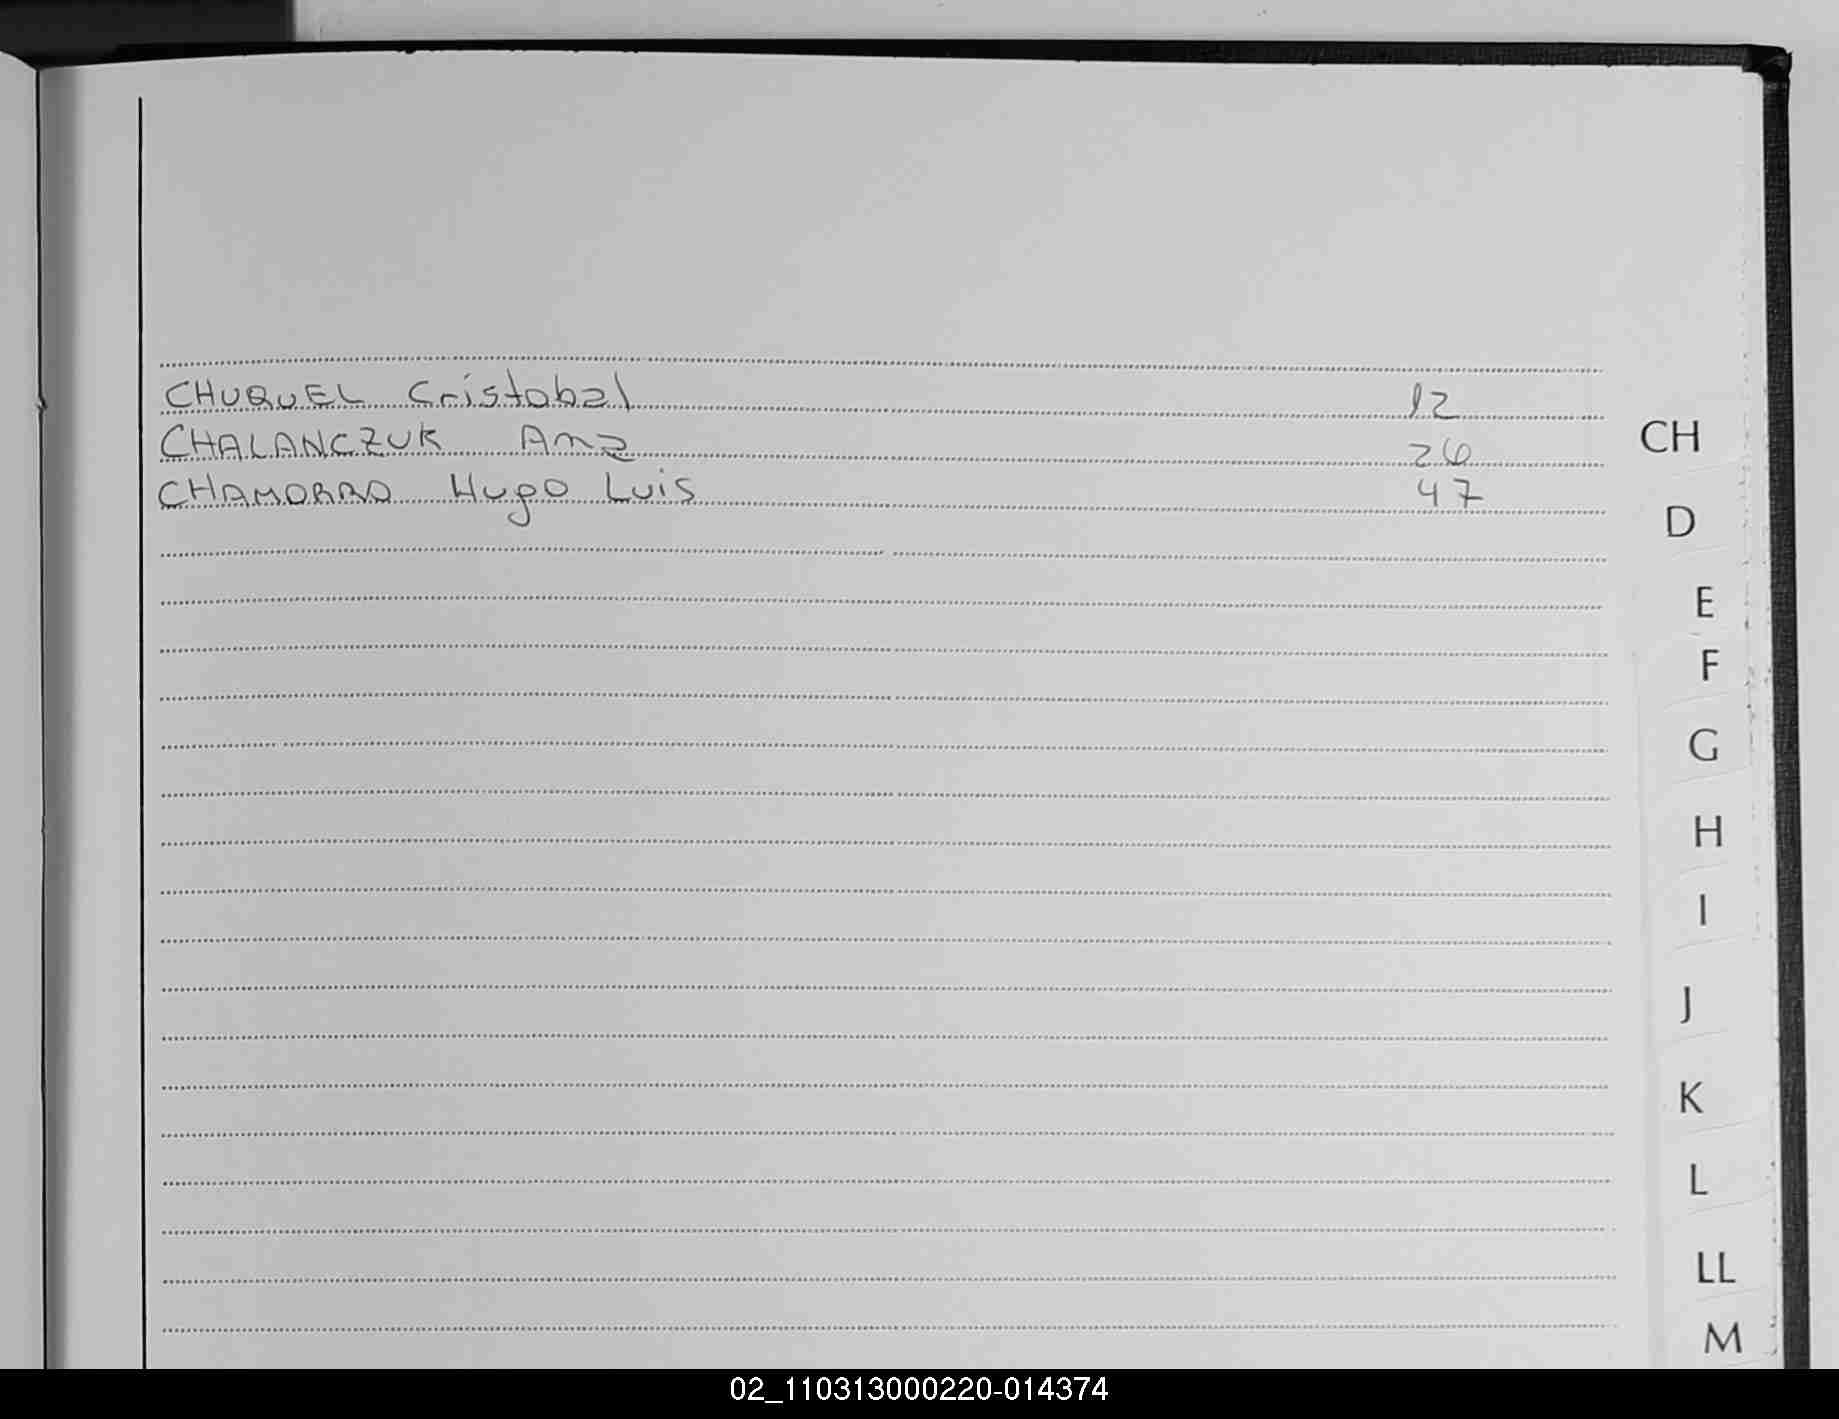 CHUQUEL Cristobal 12
CHALANCZUK Ana 26
CHAMORRO Hugo Luis 47
CH
D
E
F
G
H
I
J
K
L
LL
M
02_110313000220-014374